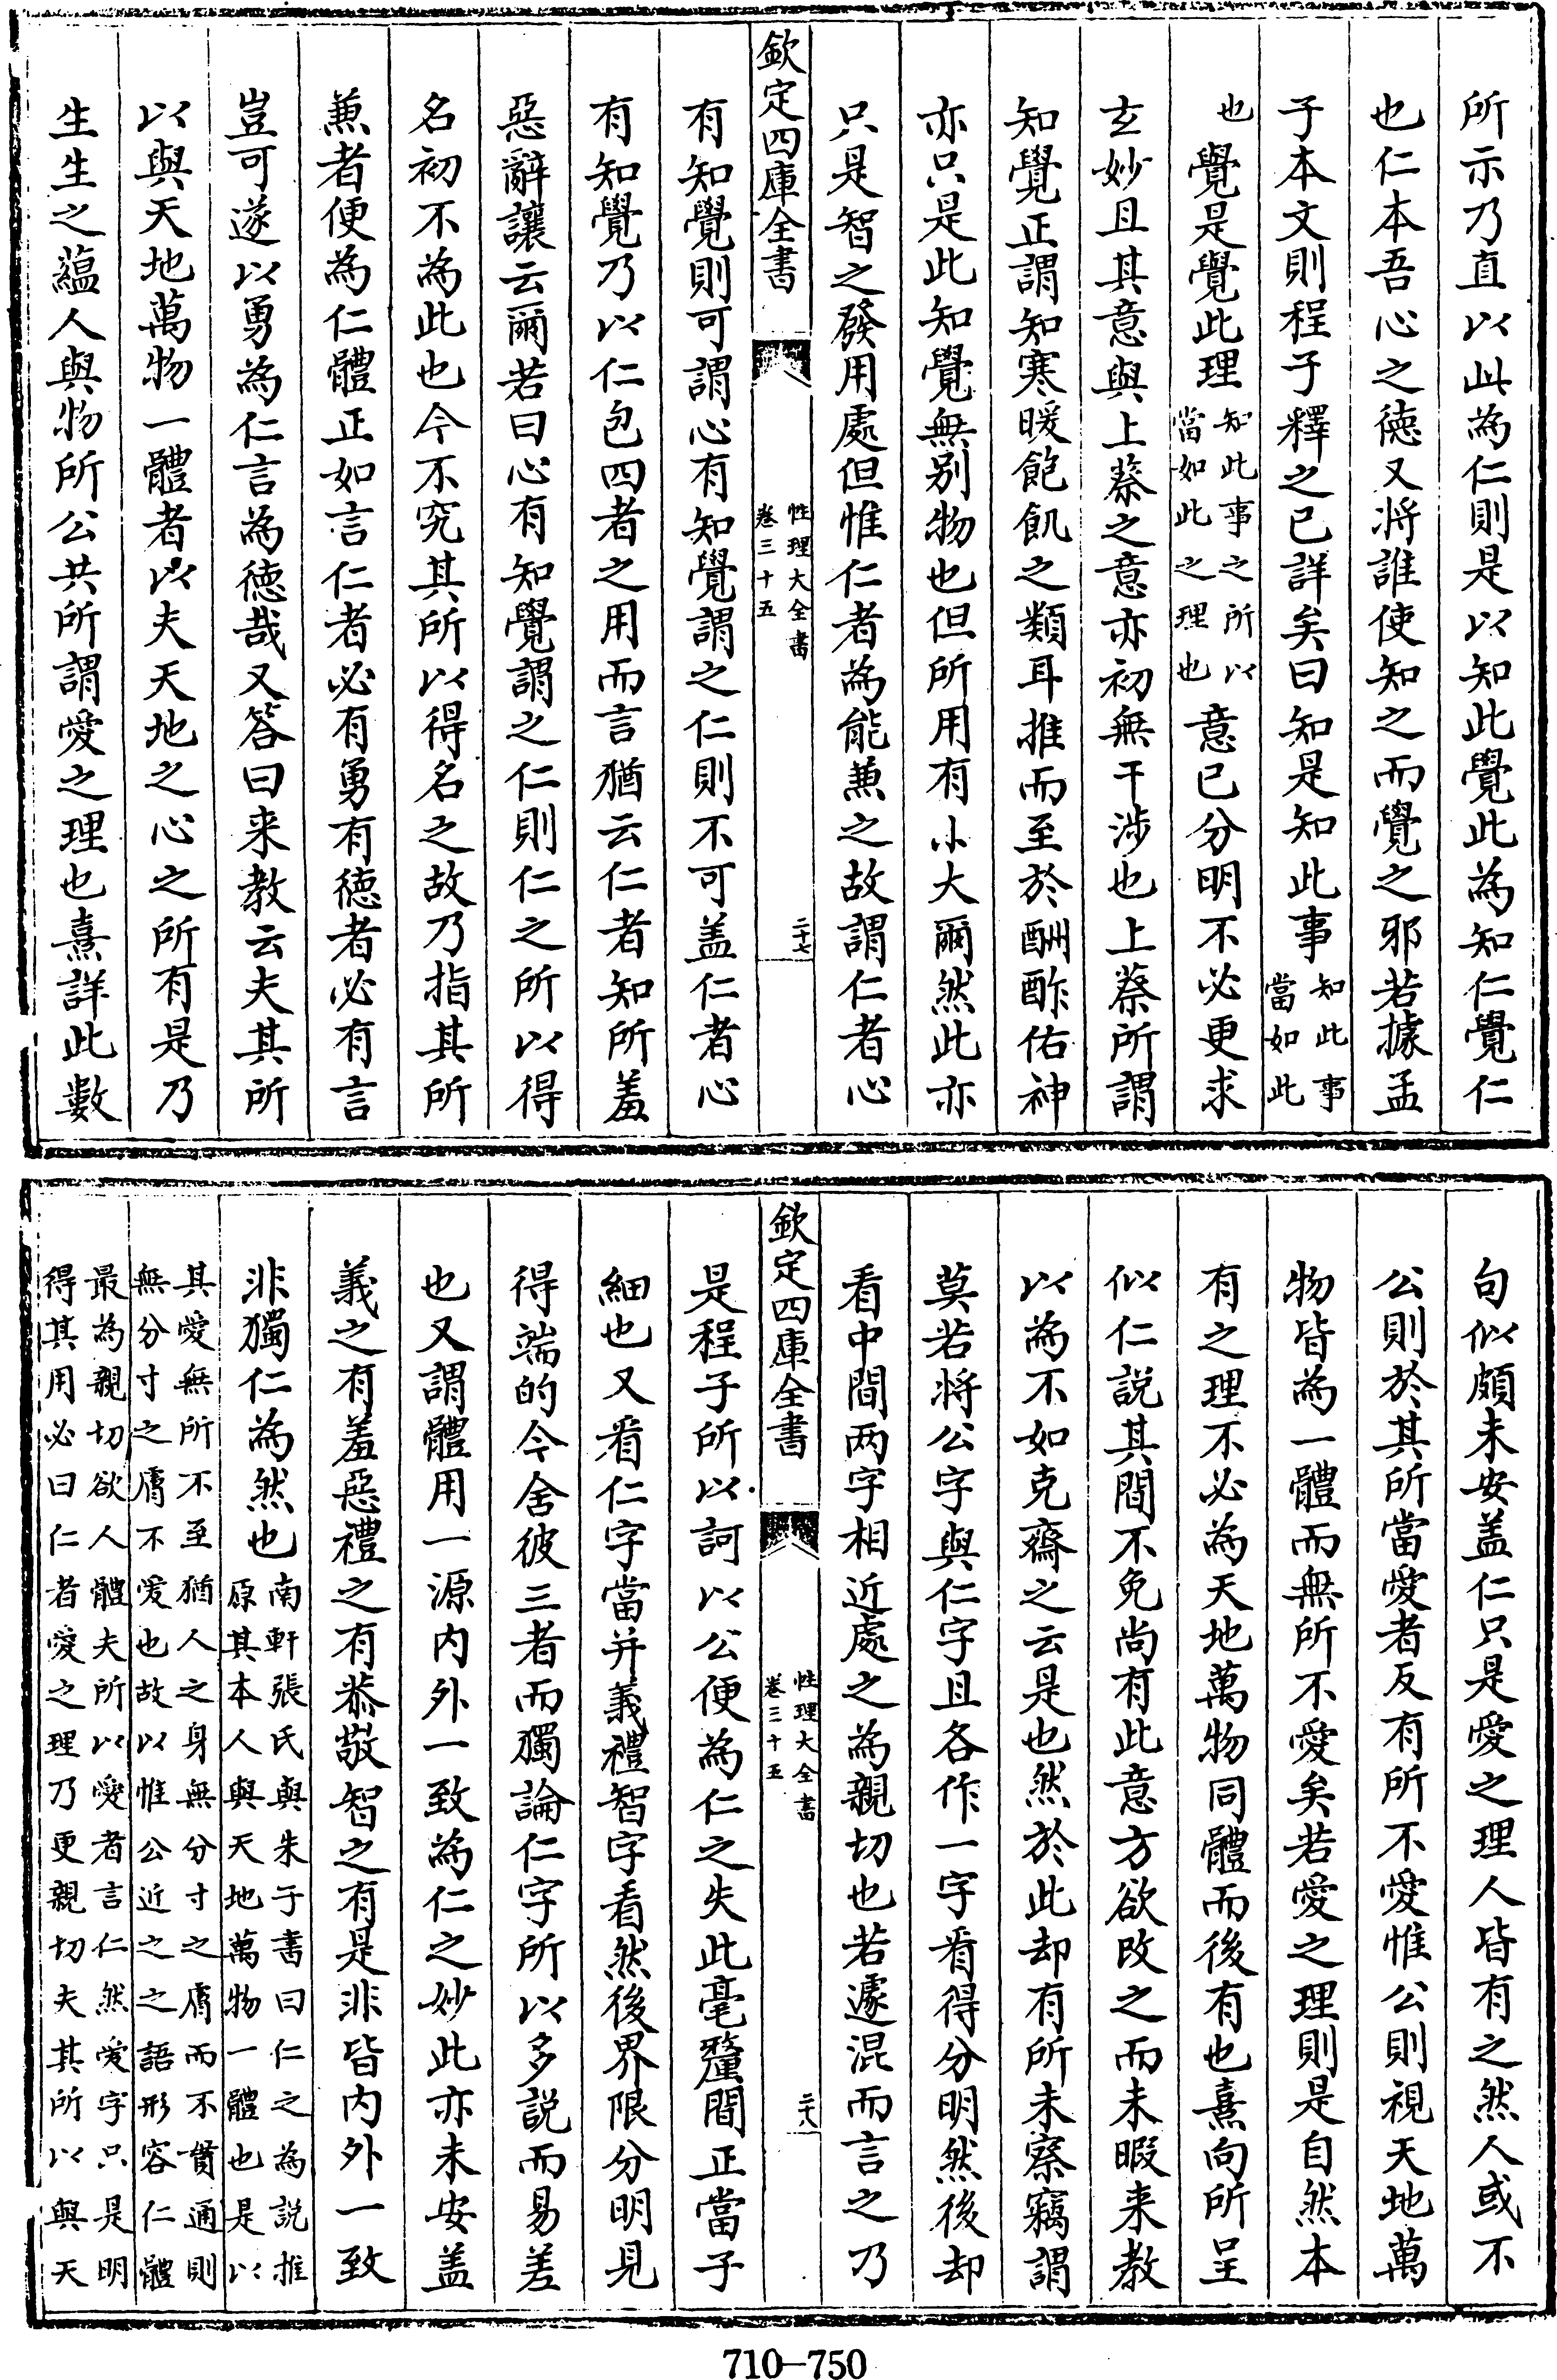 所示乃直以此為仁則是以知此覺此為知仁覺仁
也仁本吾心之徳又将誰使知之而覺之邪若據孟
子本文則程子釋之已詳矣曰知是知此事知此事當如此
也覺是覺此理知此事之所以當如此之理也意已分明不必更求
玄妙且其意與上蔡之意亦初無干涉也上蔡所謂
知覺正謂知寒暖飽飢之類耳推而至於酬酢佑神
亦只是此知覺無别物也但所用有小大爾然此亦
只是智之發用處但惟仁者為能兼之故謂仁者心
欽定四庫全書
性理大全書
卷三十五
二十七
有知覺則可謂心有知覺謂之仁則不可盖仁者心
有知覺乃以仁包四者之用而言猶云仁者知所羞
惡辭讓云爾若曰心有知覺謂之仁則仁之所以得
名初不為此也今不究其所以得名之故乃指其所
兼者便為仁體正如言仁者必有勇有徳者必有言
豈可遂以勇為仁言為徳哉又答曰来教云夫其所
以與天地萬物一體者以夫天地之心之所有是乃
生生之藴人與物所公共所謂愛之理也熹詳此數
句似頗未安盖仁只是愛之理人皆有之然人或不
公則於其所當愛者反有所不愛惟公則視天地萬
物皆為一體而無所不愛矣若愛之理則是自然本
有之理不必為天地萬物同體而後有也熹向所呈
似仁説其間不免尚有此意方欲改之而未暇来教
以為不如克齋之云是也然於此却有所未察竊謂
莫若将公字與仁字且各作一字看得分明然後却
看中間两字相近處之為親切也若遽混而言之乃
欽定四庫全書
性理大全書
卷三十五
二十八
是程子所以訶以公便為仁之失此毫釐間正當子
細也又看仁字當并義禮智字看然後界限分明見
得端的今舍彼三者而獨論仁字所以多説而易差
也又謂體用一源内外一致為仁之妙此亦未安盖
義之有羞惡禮之有恭敬智之有是非皆内外一致
非獨仁為然也南軒張氏與朱子書曰仁之為説推原其本人與天地萬物一體也是以
其愛無所不至猶人之身無分寸之膚而不貫通則無分寸之膚不愛也故以惟公近之之語形容仁體
最為親切欲人體夫所以愛者言仁然愛字只是明得其用必曰仁者愛之理乃更親切夫其所以與天
710—750